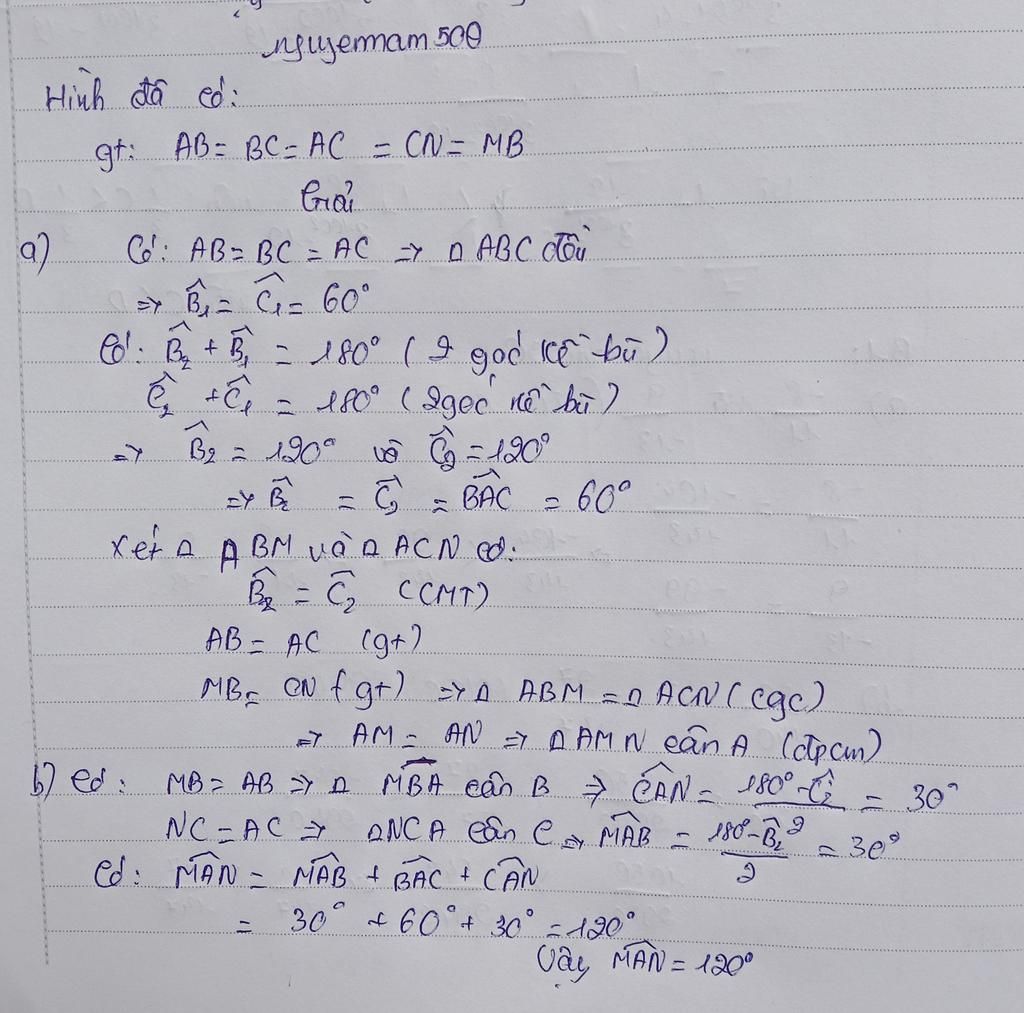 nguyennam500
Hình đã có:
gt: AB = BC = AC = CN = MB
Giải
a) Có: AB = BC = AC => Δ ABC đều
=> B̂₁ = Ĉ₁ = 60°
Có: B̂₂ + B̂₁ = 180° (2 góc kề bù)
Ĉ₂ + Ĉ₁ = 180° (2 góc kề bù)
=> B̂₂ = 120° và Ĉ₂ = 120°
=> B̂ = Ĉ = BAC = 60°
Xét Δ ABM và Δ ACN có:
B̂₂ = Ĉ₂ (CMT)
AB = AC (gt)
MB = CN (gt) => Δ ABM = Δ ACN (cgc)
=> AM = AN => Δ AMN cân A (đpcm)
b) Có: MB = AB => Δ MBA cân B => CAN = (180° - Ĉ₂)/2 = 30°
NC = AC => Δ NCA cân C => MAB = (180° - B̂₂)/2 = 30°
Có: MAN = MAB + BAC + CAN
= 30° + 60° + 30° = 120°
Vậy MAN = 120°